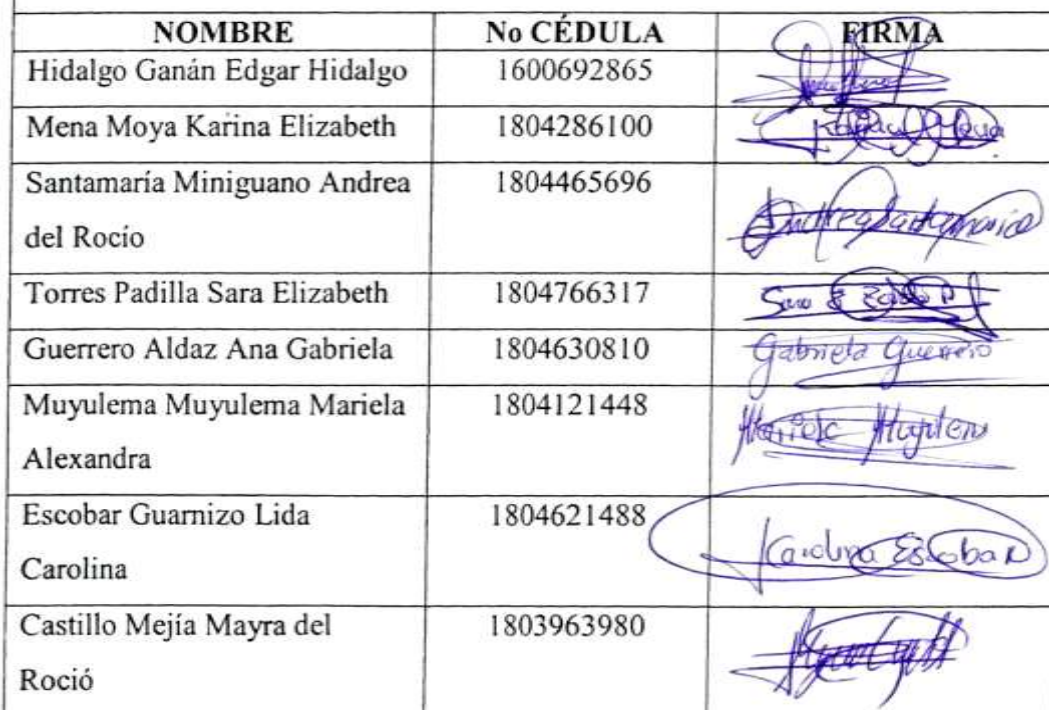 NOMBRE No CÉDULA FIRMA
Hidalgo Ganán Edgar Hidalgo 1600692865
Mena Moya Karina Elizabeth 1804286100
Santamaría Miniguano Andrea 1804465696
del Rocío Andrea Santamaria
Torres Padilla Sara Elizabeth 1804766317 Sara E
Guerrero Aldaz Ana Gabriela 1804630810 Gabriela Guerrero
Muyulema Muyulema Mariela 1804121448 Mariela
Alexandra
Escobar Guarnizo Lida 1804621488
Carolina Carolina Escobar
Castillo Mejía Mayra del 1803963980
Roció